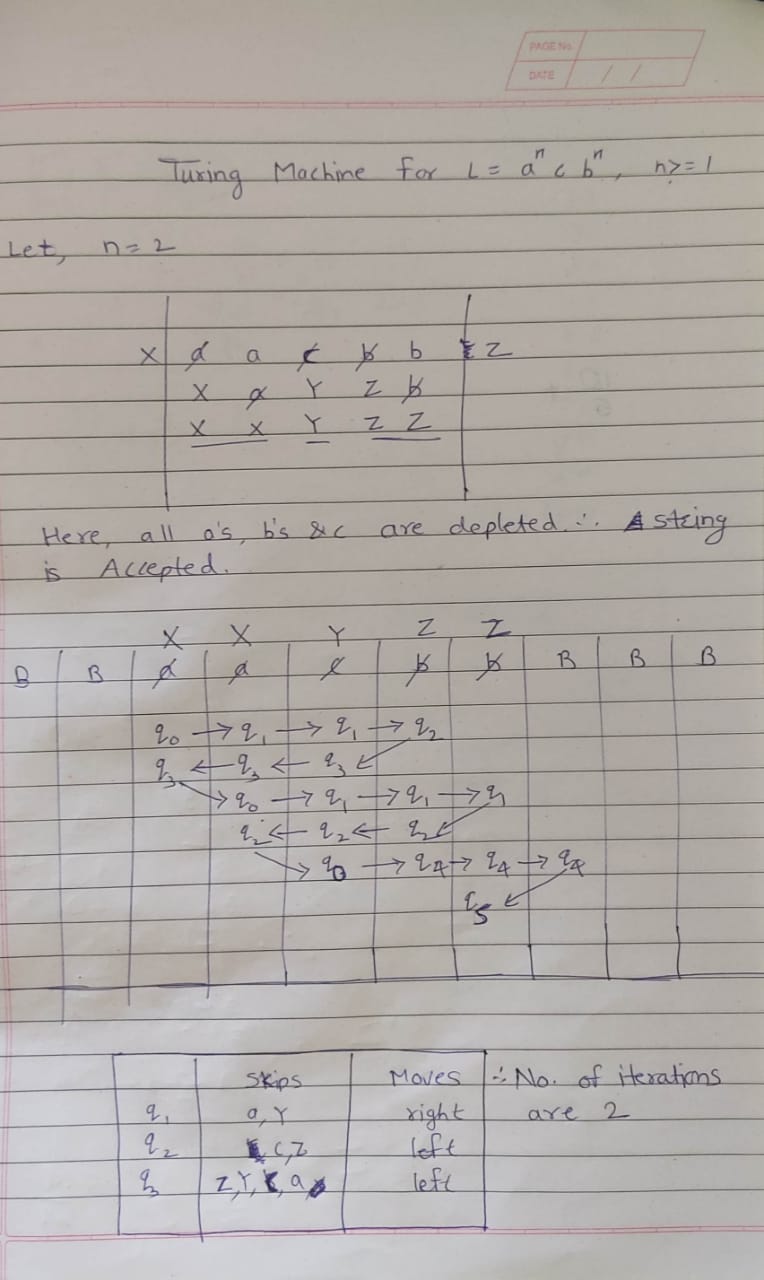 PAGE No.
DATE / /
Turing Machine for L = aⁿ c bⁿ, n>=1
Let, n=2
X a a c b b Z
X a Y Z b
X X Y Z Z
Here, all a's, b's & c are depleted. ∴ string
is Accepted.
X X Y Z Z
B B a a c b b B B B
q₀ → q₁ → q₁ → q₂
q₃ ← q₃ ← q₃
q₀ → q₁ → q₁ → q₁
q₂ ← q₂ ← q₂
q₀ → q₄ → q₄ → q₄
q₅
Skips Moves ∴ No. of iterations
q₁ a, Y right are 2
q₂ C, Z left
q₃ Z, Y, a left